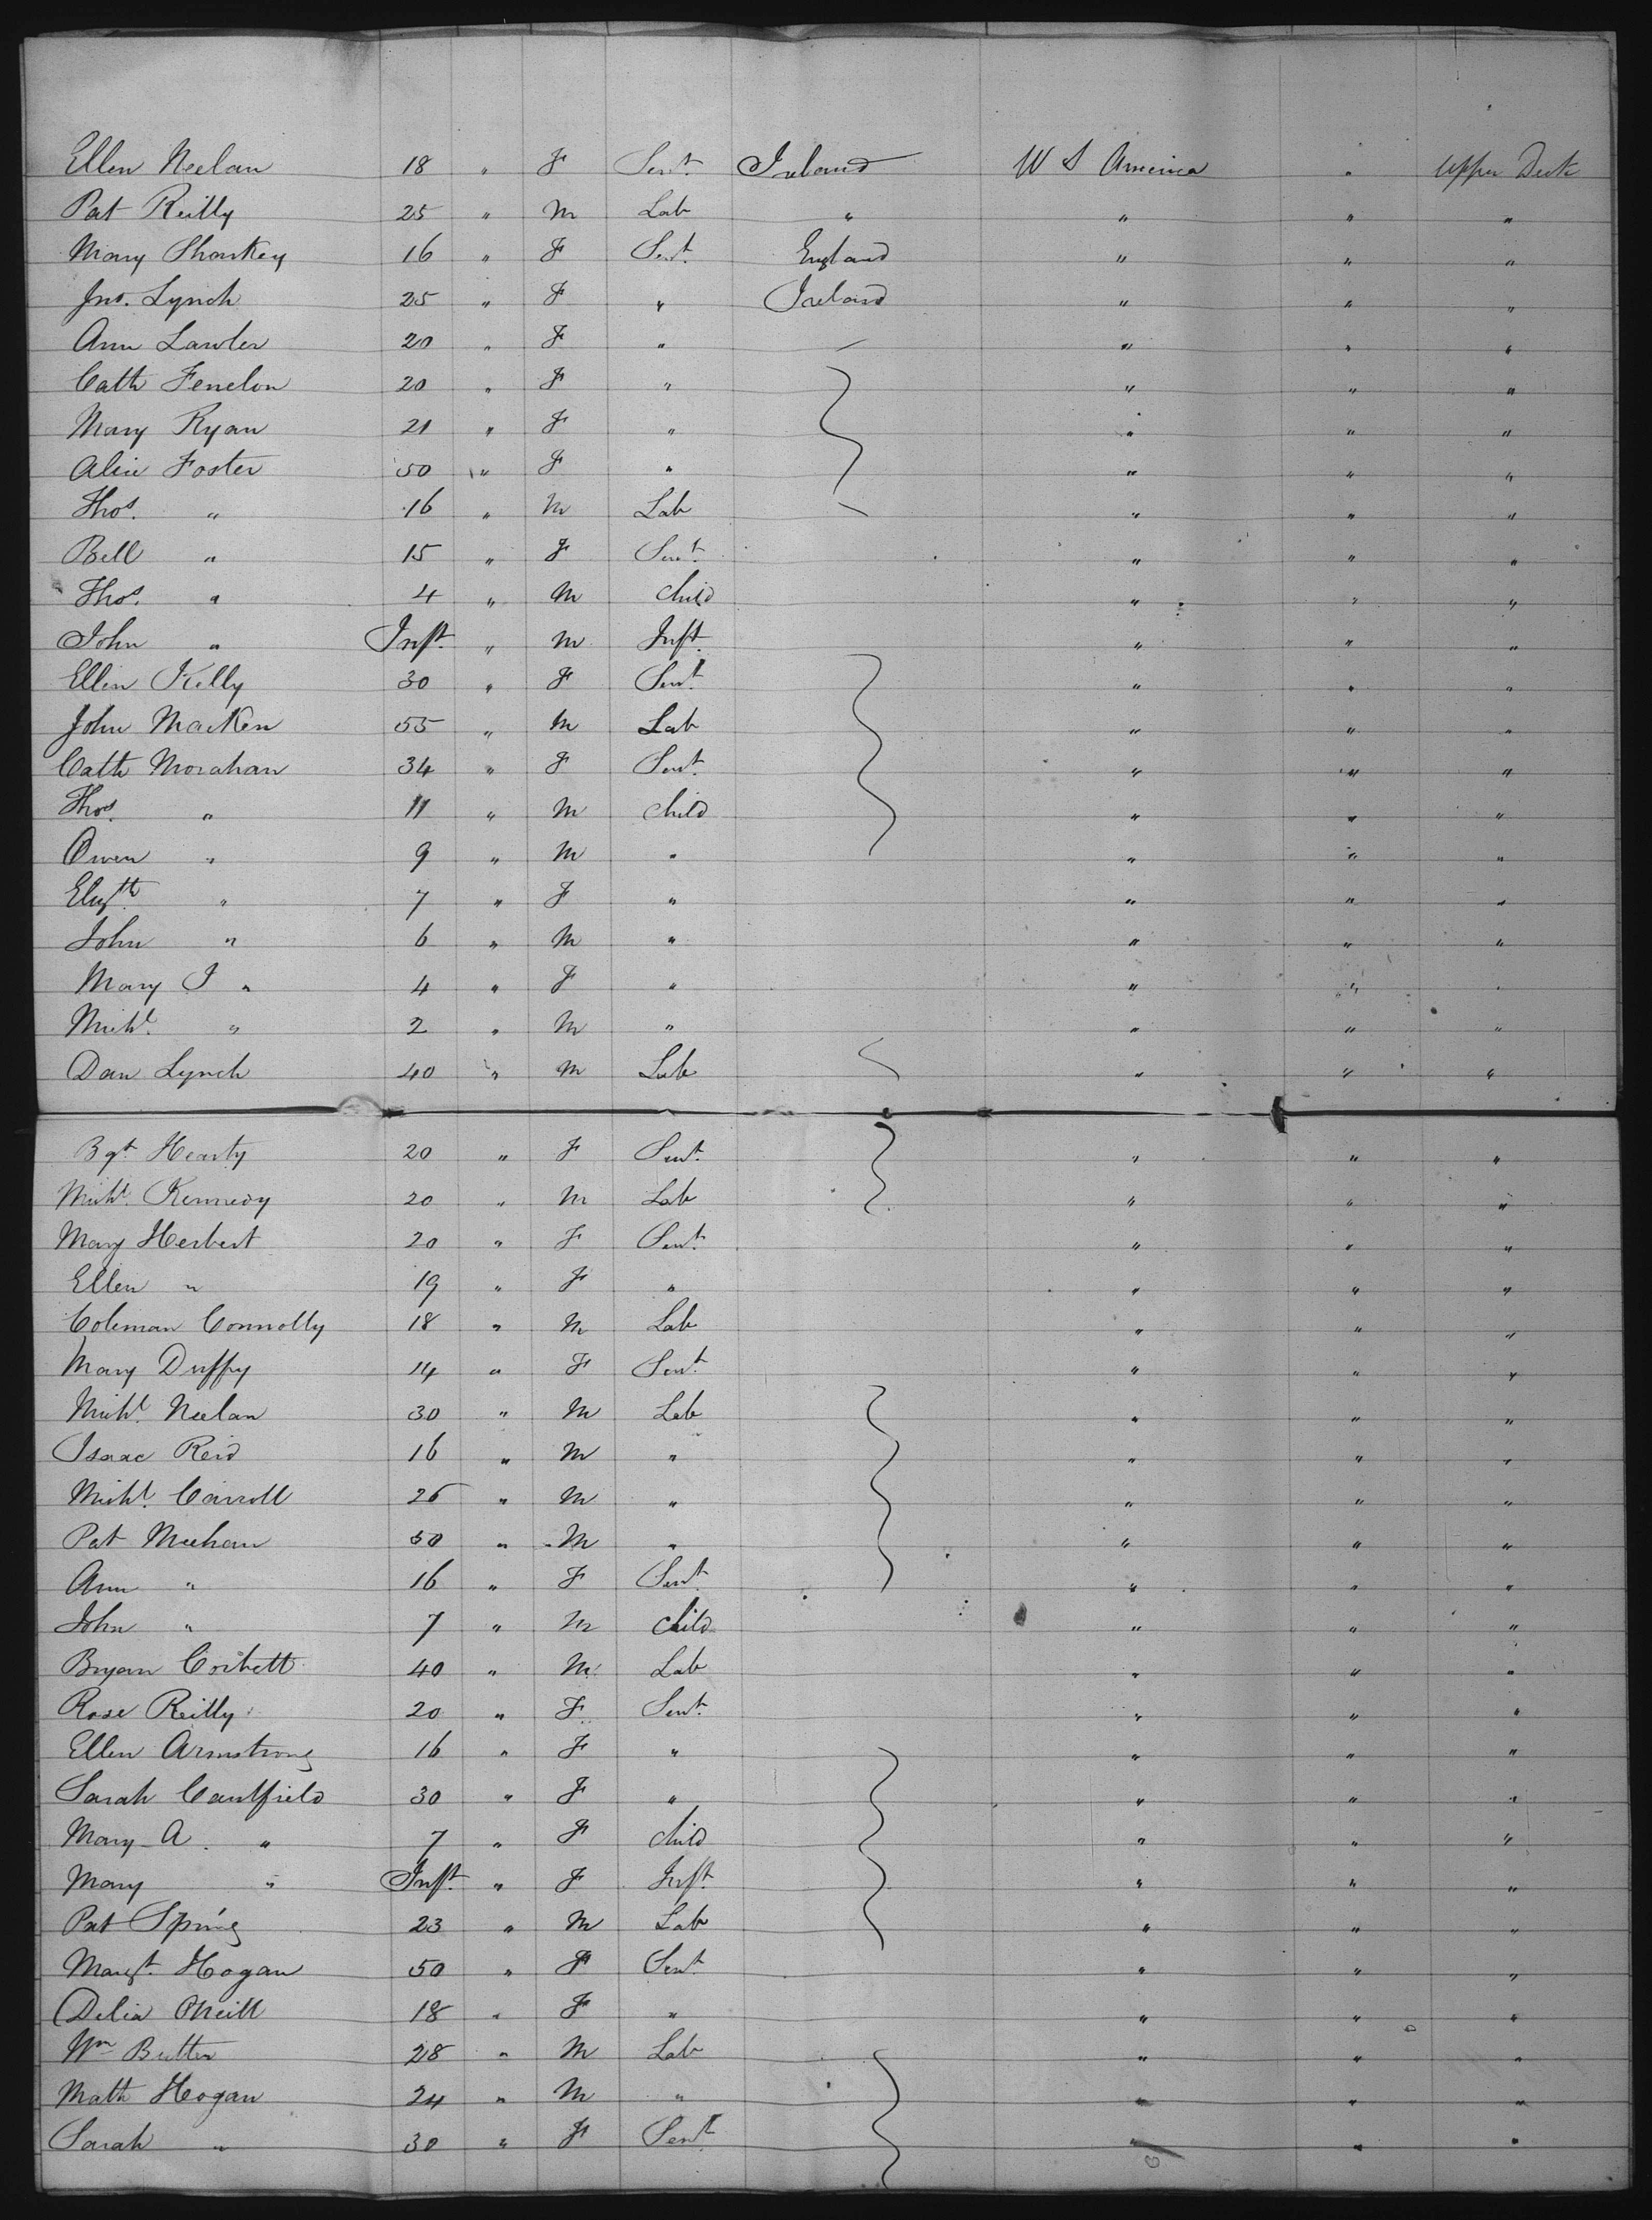 Ellen Neelan 18 " F Servt. Ireland U S America " Upper Deck
Pat Reilly 25 " M Lab " " " "
Mary Sharkey 16 " F Servt. England " " "
Jno. Lynch 25 " F " Ireland " " "
Ann Lawler 20 " F " " " "
Cath Fenelon 20 " F " " " "
Mary Ryan 21 " F " " " "
Alice Foster 50 " F " " " "
Thos. " 16 " M Lab " " "
Bell " 15 " F Servt. " " "
Thos. " 4 " M Child " " "
John " Inft. " M Inft. " " "
Ellen Kelly 30 " F Servt. " " "
John Macken 55 " M Lab " " "
Cath Morahan 34 " F Servt. " " "
Thos. " 11 " M Child " " "
Owen " 9 " M " " " "
Elizth " 7 " F " " " "
John " 6 " M " " " "
Mary J " 4 " F " " " "
Michl. " 2 " M " " " "
Dan Lynch 40 " M Lab " " "
Bgt. Hearty 20 " F Servt. " " "
Michl. Kennedy 20 " M Lab " " "
Mary Herbert 20 " F Servt. " " "
Ellen " 19 " F " " " "
Coleman Connolly 18 " M Lab " " "
Mary Duffy 14 " F Servt. " " "
Michl. Neelan 30 " M Lab " " "
Isaac Reid 16 " M " " " "
Michl. Carroll 26 " M " " " "
Pat Meehan 50 " M " " " "
Ann " 16 " F Servt. " " "
John " 7 " M Child " " "
Bryan Corbett 40 " M Lab " " "
Rose Reilly 20 " F Servt. " " "
Ellen Armstrong 16 " F " " " "
Sarah Caulfield 30 " F " " " "
Mary A. " 7 " F Child " " "
Mary " Inft. " F Inft. " " "
Pat Spring 23 " M Lab " " "
Margt. Hogan 50 " F Servt. " " "
Delia ONeill 18 " F " " " "
Wm Butler 28 " M Lab " " "
Math Hogan 24 " M " " " "
Sarah " 30 " F Servt. " " "